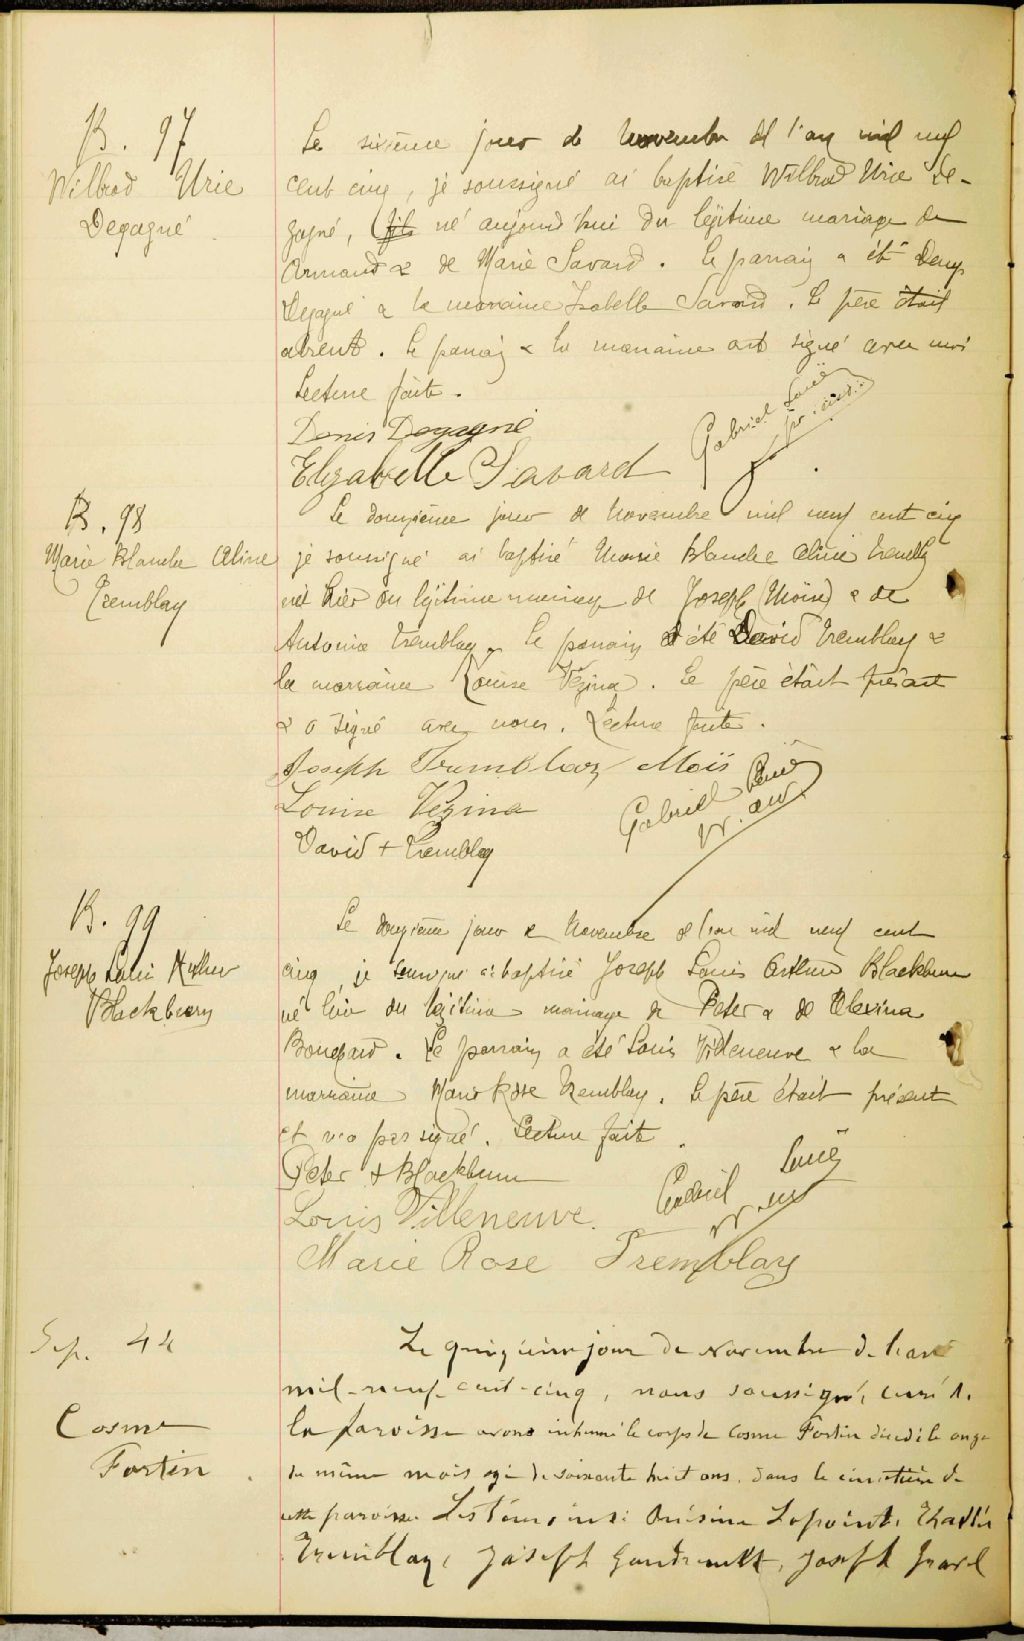 B. 97
Wilbrod Urie
Degagné
Le sixième jour de Novembre de l'an mil neuf
cent cinq, je soussigné ai baptisé Wilbrod Urie De-
gagné, fils né aujourd'hui du légitime mariage de
Armand & de Marie Savard. Le parrain a été Denys
Degagné & la marraine Isabelle Savard. Le père était
absent. Le parrain & la marraine ont signé avec moi
Lecture faite.
Denis Degagné
Gabriel
Elizabelle Savard
B. 98
Marie Blanche Aline
Tremblay
Le douzième jour de Novembre mil neuf cent cinq
je soussigné ai baptisé Marie Blanche Aline Tremblay
née hier du légitime mariage de Joseph (Moïse) & de
Antonia Tremblay. Le parrain a été David Tremblay &
la marraine Louise Vézina. Le père était présent
& a signé avec nous. Lecture faite.
Joseph Tremblay Moïs
Louise Vezina
Gabriel
David + Tremblay
B. 99
Joseph Louis Arthur
Blackburn
Le douzième jour de Novembre de l'an mil neuf cent
cinq, je soussigné ai baptisé Joseph Louis Arthur Blackburn
né hier du légitime mariage de Peter & de Elexina
Bouchard. Le parrain a été Louis Villeneuve & la
marraine Marie Rose Tremblay. Le père était présent
et n'a pas signé. Lecture faite.
Peter + Blackburn
Gabriel
Louis Villeneuve.
Marie Rose Tremblay
Sep. 44
Cosme
Fortin
Le quinzième jour de Novembre de l'an
mil-neuf-cent-cinq, nous soussigné, curé de
la paroisse avons inhumé le corps de Cosme Fortin décédé le onze
du même mois agé de soixante huit ans, dans le cimetière de
cette paroisse. Les témoins: Onésime Lapointe,
Tremblay, Joseph Gaudreault, Joseph Gravel